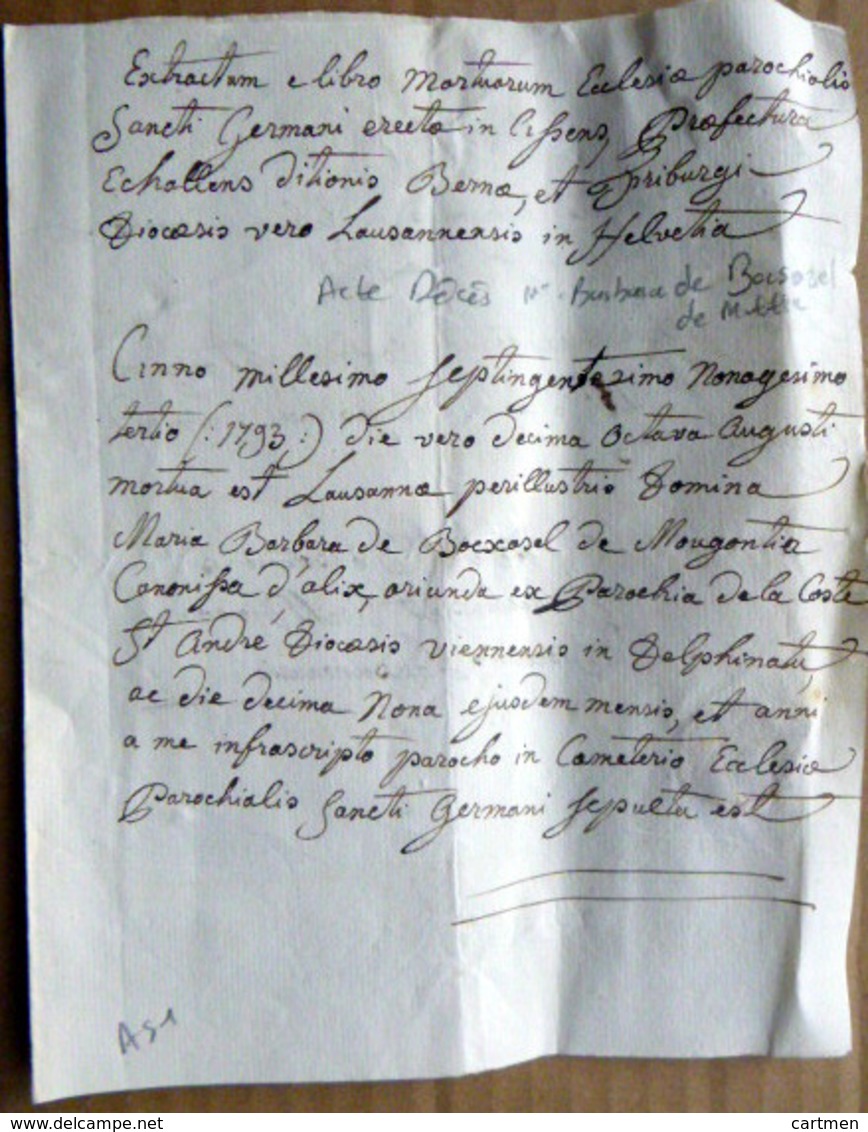 Extractum e libro mortuorum Ecclesiæ parochialis
Sancti Germani erecta in Assens, Præfectura
Echallens ditionis Bernæ, et Friburgi
Diocæsis vero Lausannensis in Helvetia
Acte Décès Barbara de
de
Anno millesimo septingentesimo Nonagesimo
tertio (: 1793 :) die vero decima Octava Augusti
mortua est Lausannæ perillustris Domina
Maria Barbara de Bocxosel de Mongontier
Canonissa d'alix, oriunda ex Parochia de la Coste
St André Diocæsis viennensis in Delphinatu,
ac die decima Nona ejusdem mensis, et anni
a me infrascripto parocho in Cæmeterio Ecclesiæ
Parochialis Sancti Germani sepulta est
www.delcampe.net
cartmen